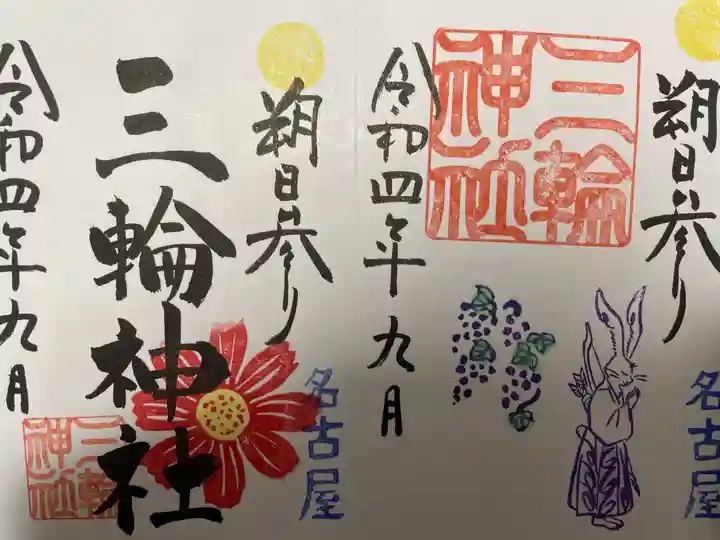 朔日参り
名古屋
三輪神社
令和四年九月
朔日参り
名古屋
三輪神社
三輪神社
令和四年九月